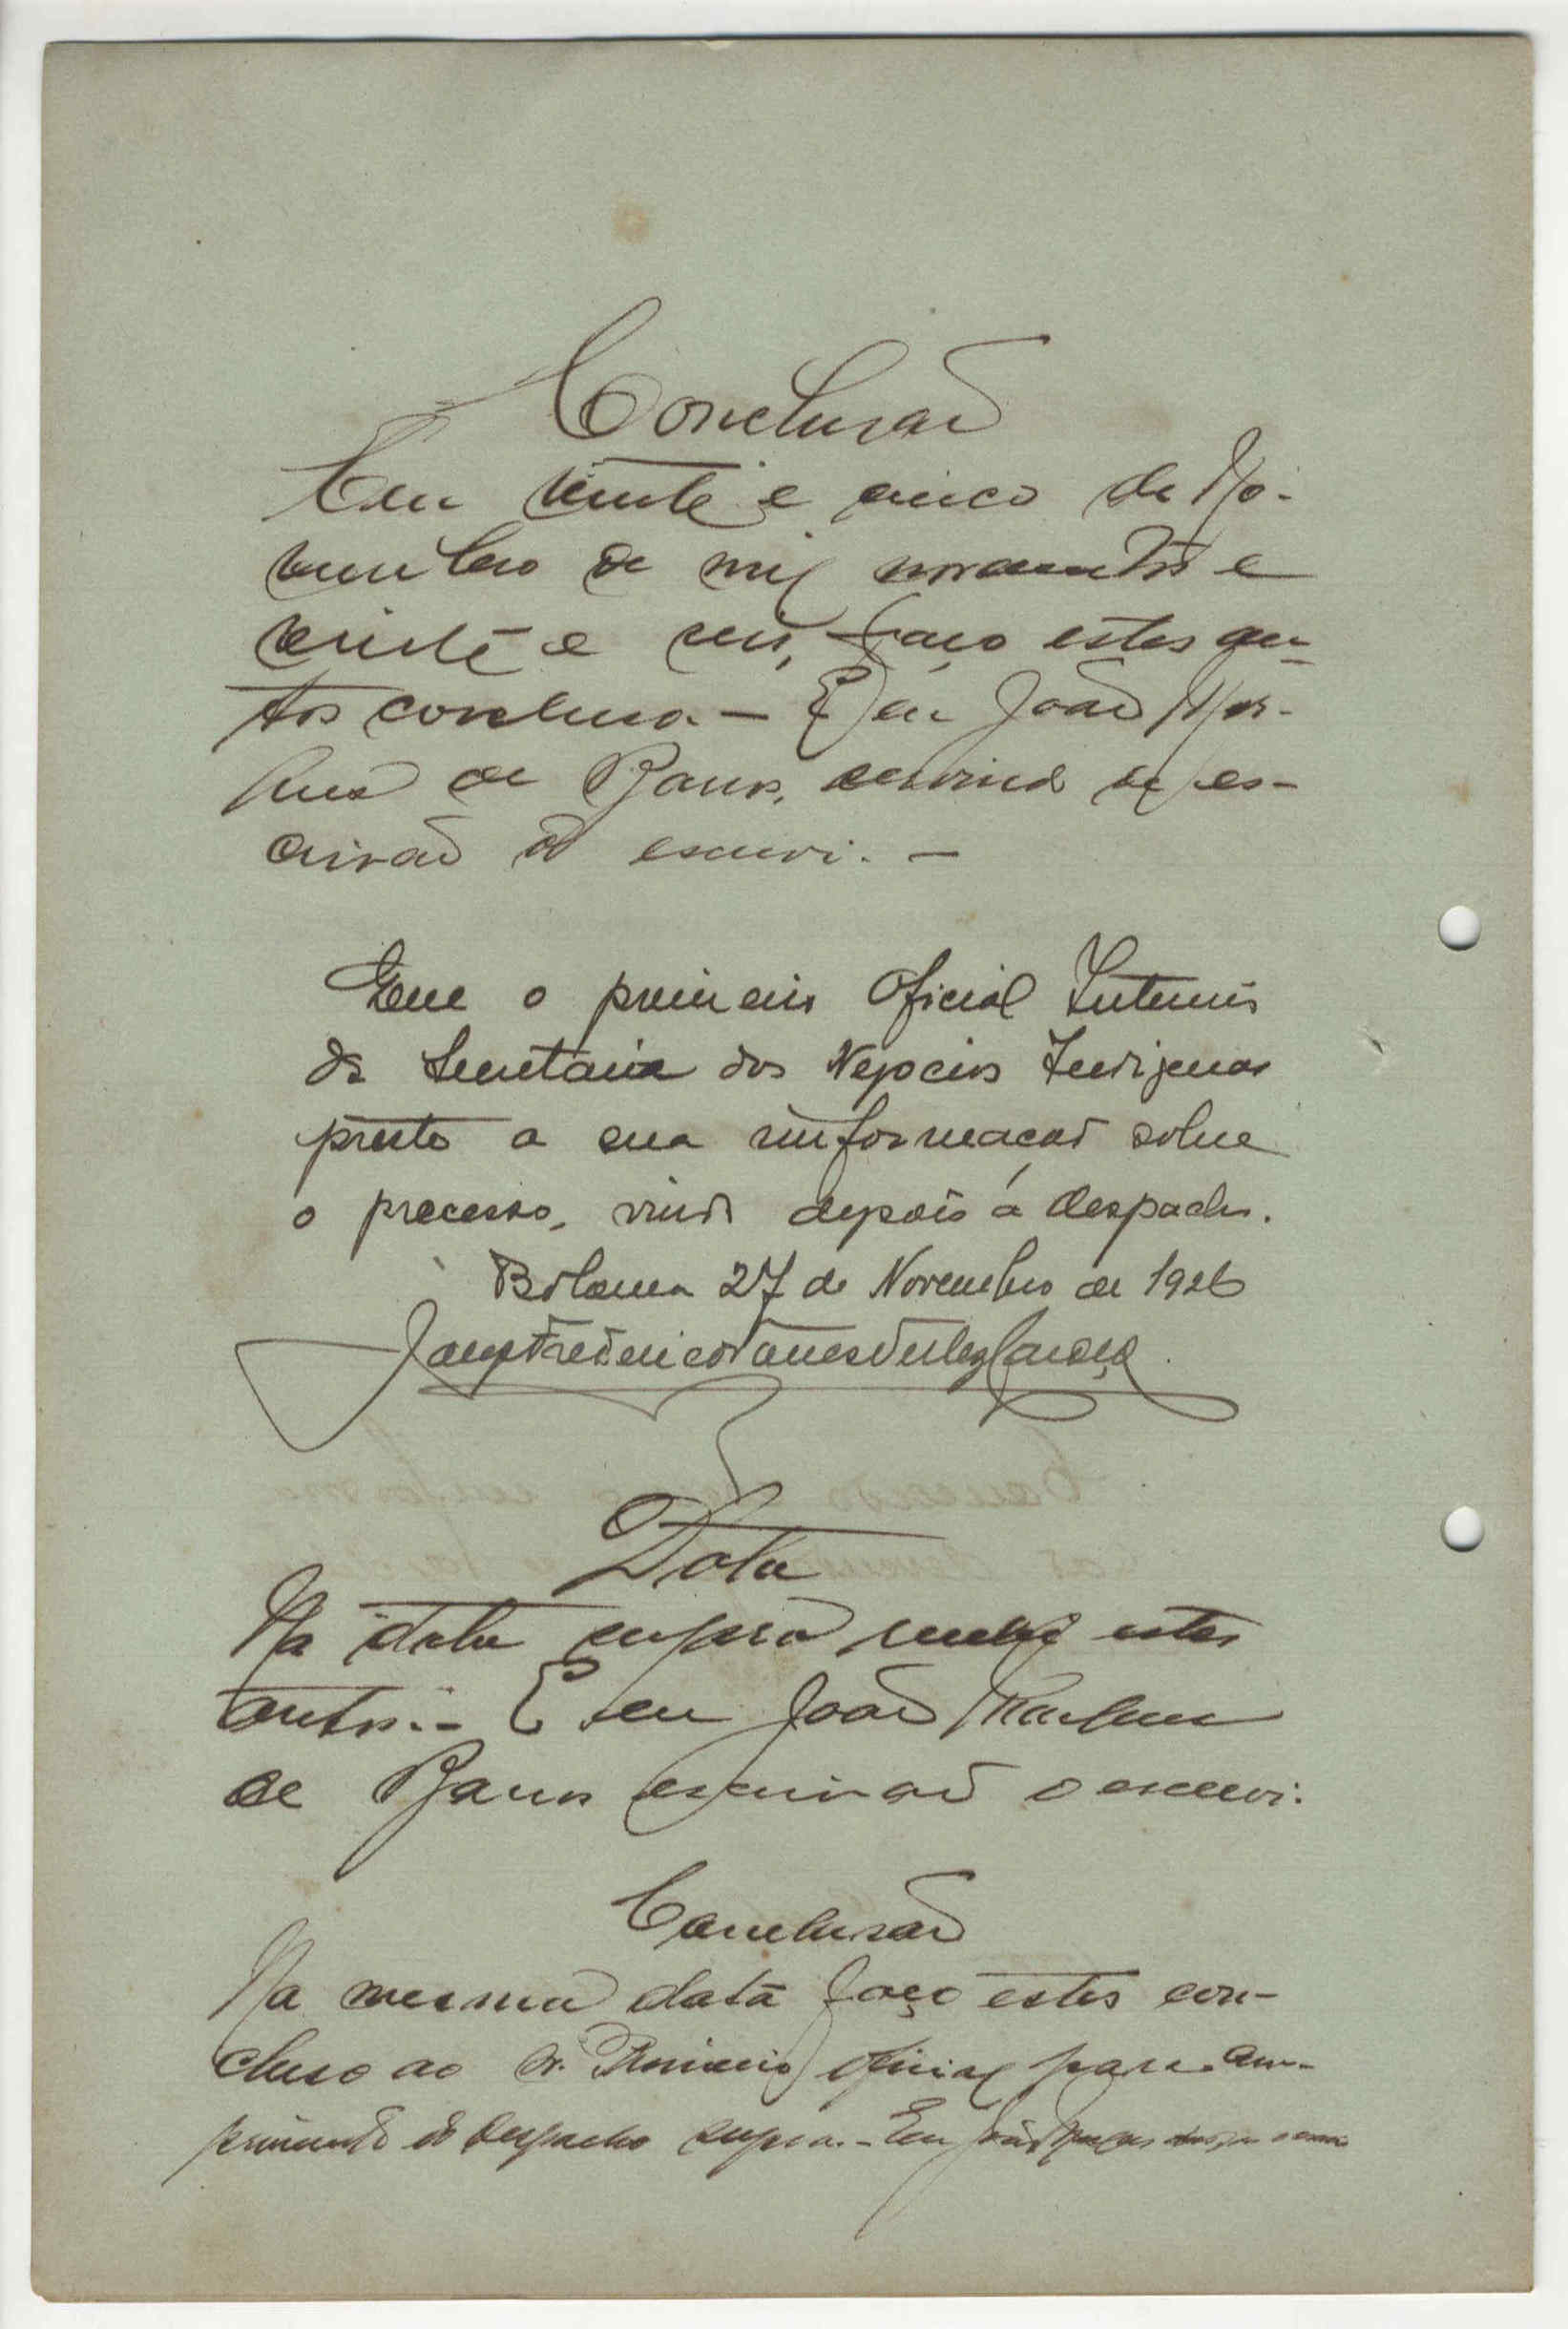 Conclusão
Em vinte e cinco de No-
vembro de mil novecentos e
vinte e seis, faço estes au-
tos concluso. — E eu João
de Barros, servindo de es-
crivão o escrevi. —
Que o primeiro Oficial Interino
da Secretaria dos Negocios Indigenas
preste a sua informação sobre
o processo, vindo depois á despacho.
Bolama 27 de Novembro de 1926
Data
Na data supra recebi estes
autos. - E eu João
de Barros escrivão o escrevi.
Conclusão
Na mesma data faço estes con-
cluso ao Sr. Primeiro Oficial para cum-
primento do despacho supra. - Eu João